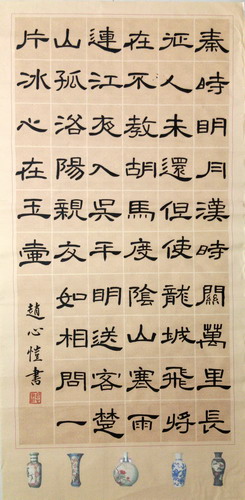 秦時明月漢時關萬里長
征人未還但使龍城飛將
在不教胡馬度陰山寒雨
連江夜入吳平明送客楚
山孤洛陽親友如相問一
片冰心在玉壺
趙心愷書